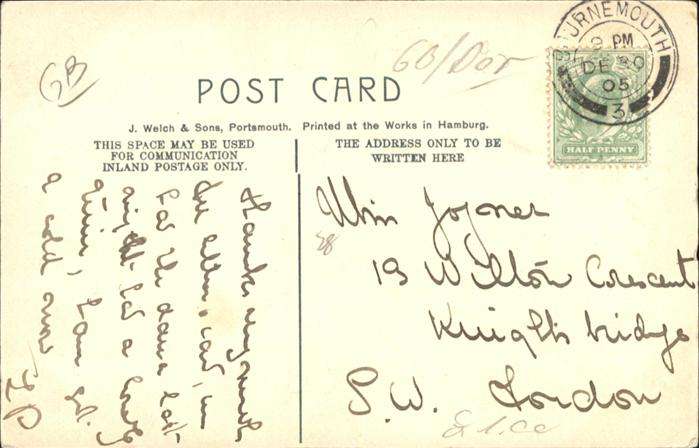 GB
GB/Dor
BOURNEMOUTH
9 PM
DE 30
05
3
HALF PENNY
POST CARD
J. Welch & Sons, Portsmouth. Printed at the Works in Hamburg.
THIS SPACE MAY BE USED
FOR COMMUNICATION
INLAND POSTAGE ONLY.
THE ADDRESS ONLY TO BE
WRITTEN HERE
Thanks very much
for letter & card,
for the dance last
night had a lovely
time, I am
a cold now
Miss Joyner
19 Wilton Crescent
Knightsbridge
S.W. London